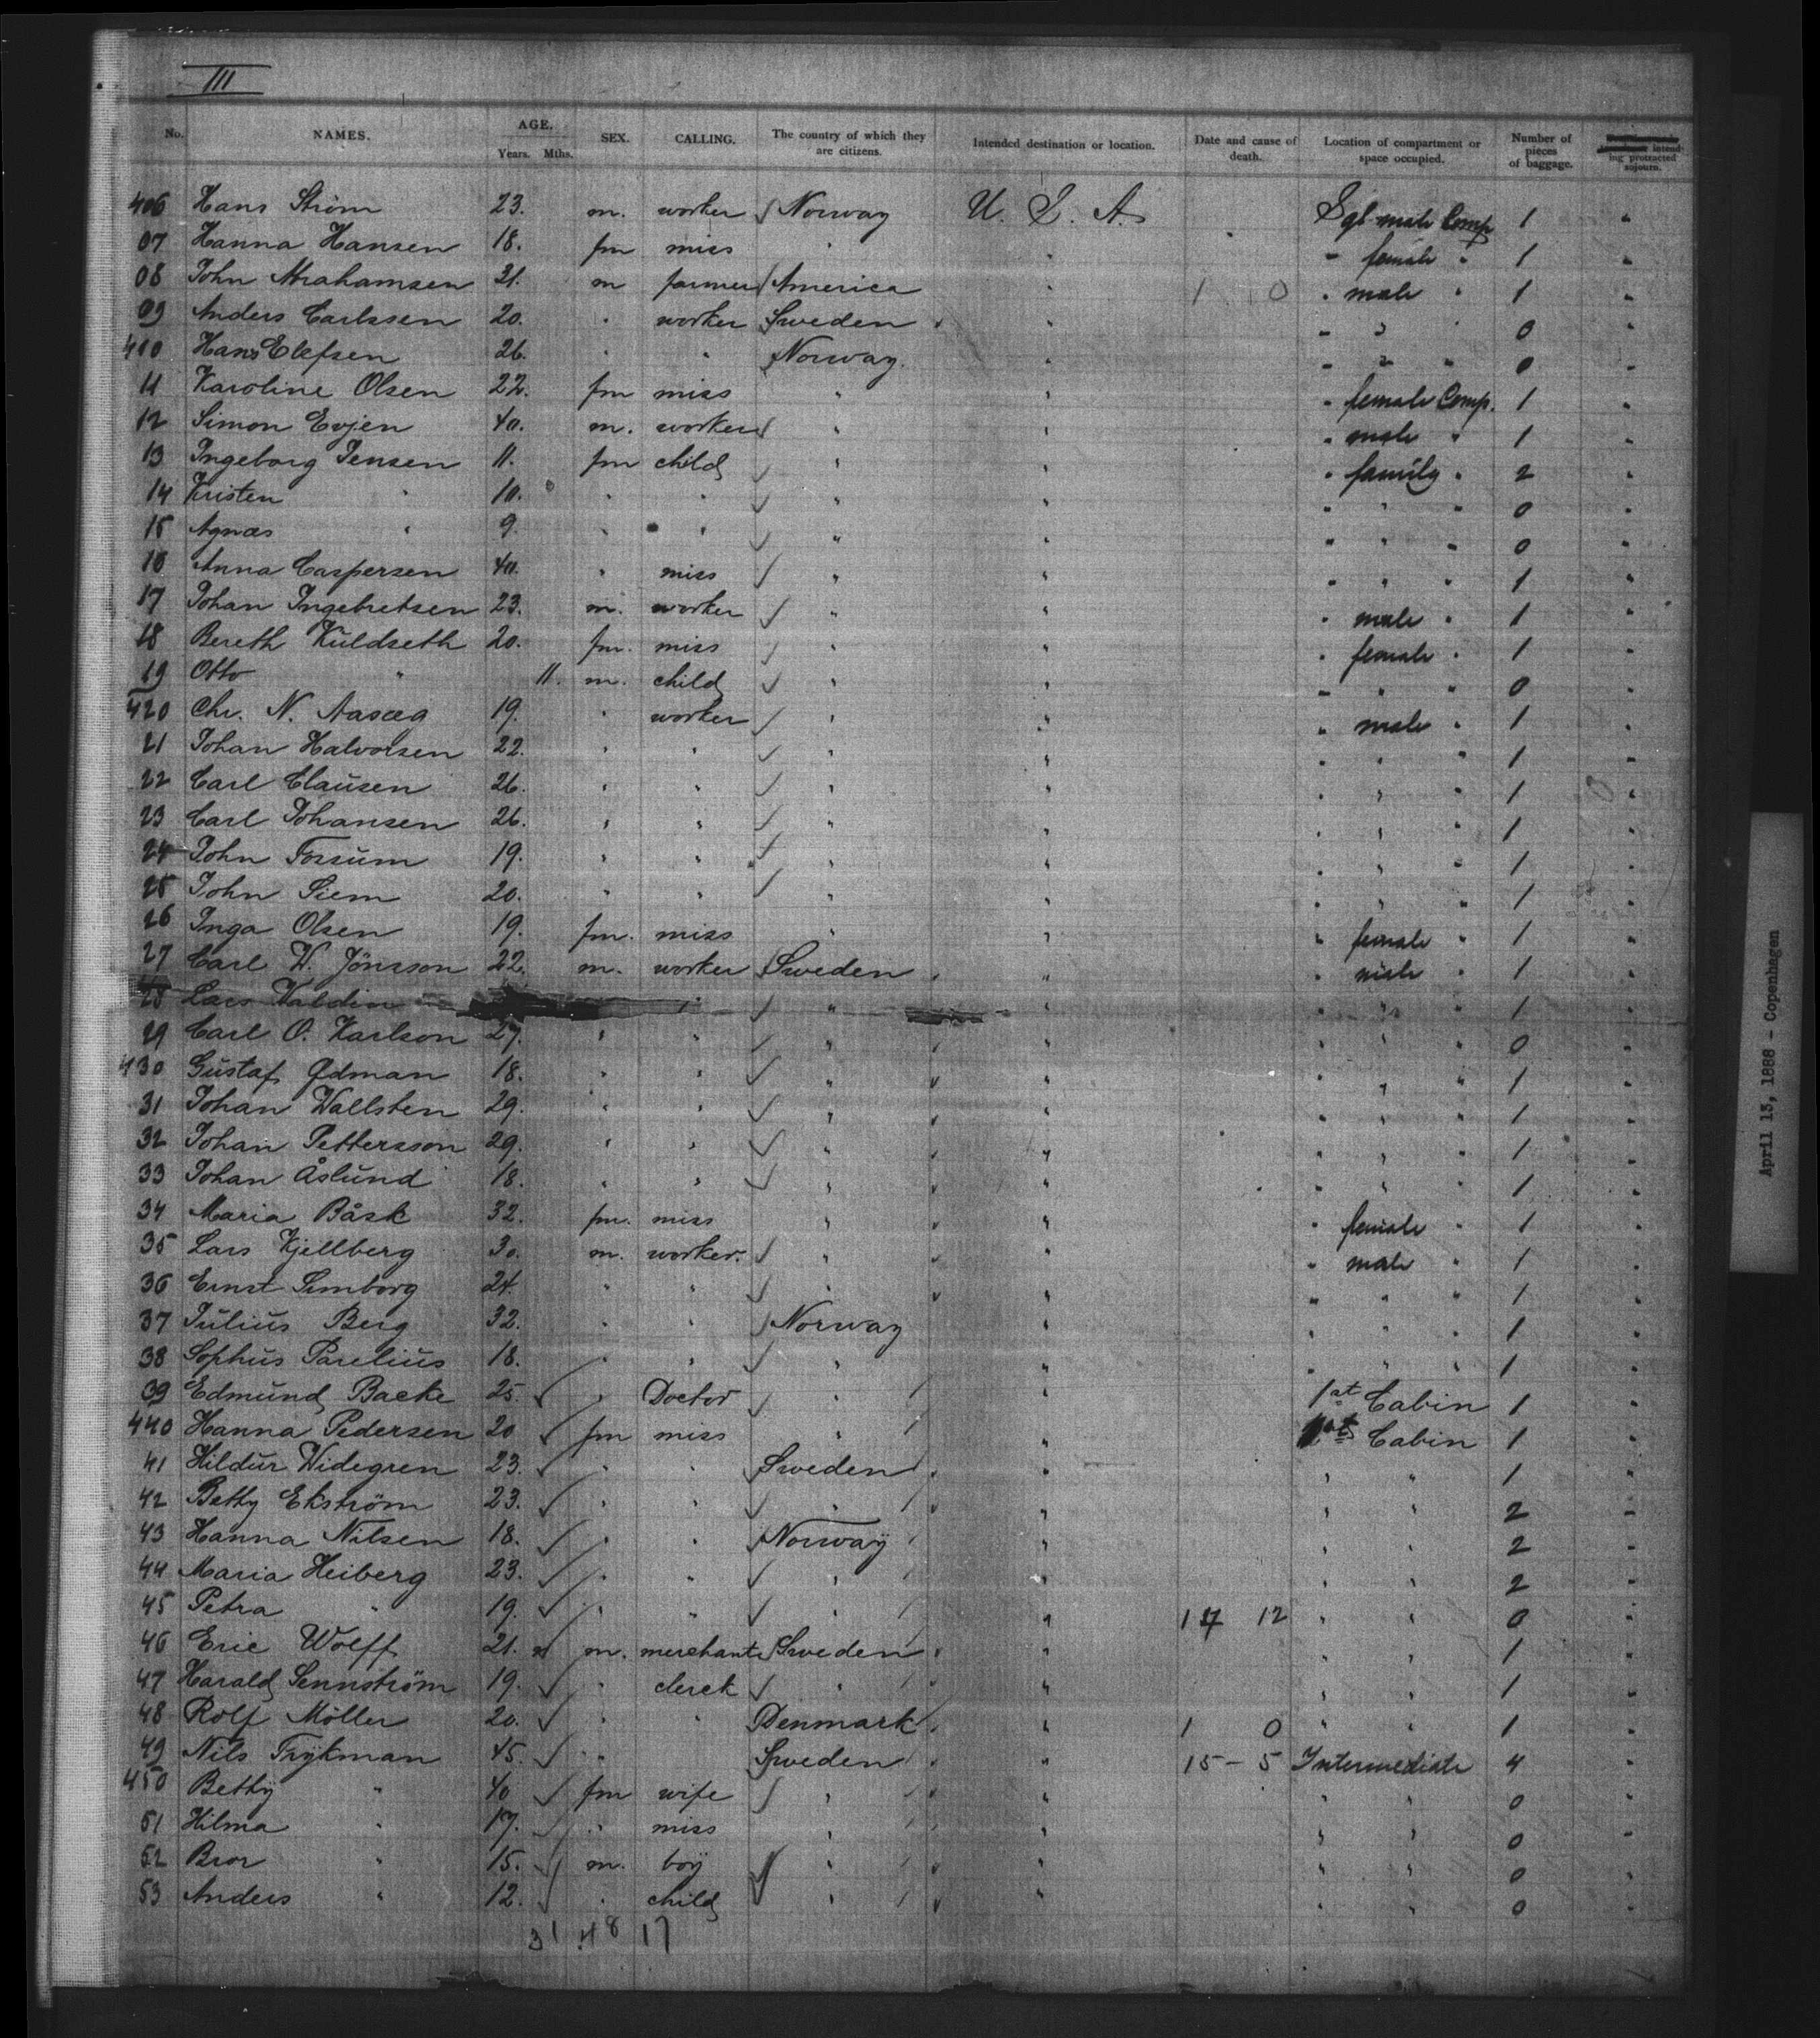 III
No. NAMES. AGE. Years. Mths. SEX. CALLING. The country of which they are citizens. Intended destination or location. Date and cause of death. Location of compartment or space occupied. Number of pieces of baggage. intending protracted sojourn.
406 Hans Ström 23. m. worker Norway U. S. A. Sgl male Comp 1 "
07 Hanna Hansen 18. fm miss " " - female " 1 "
08 John Abrahamsen 31. m farmer America " 1 0 " male " 1 "
09 Anders Carlssen 20. " worker Sweden " - " " 0 "
410 Hans Elefsen 26. " " Norway. " - " " 0 "
11 Karoline Olsen 22. fm miss " " " female Comp. 1 "
12 Simon Evjen 40. m. worker " " " male " 1 "
13 Ingeborg Jensen 11. fm child " " " family " 2 "
14 Kristen " 10. " " " " " " " 0 "
15 Agnæs " 9. " " " " " " " 0 "
16 Anna Caspersen 40. " miss " " " " " 1 "
17 Johan Ingebretsen 23. m. worker " " " male " 1 "
18 Bereth Kuldseth 20. fm. miss " " " female " 1 "
19 Otto " 11. m. child " " - " " 0 "
420 Chr. N. Aasæg 19. " worker " " " male " 1 "
21 Johan Halvorsen 22. " " " " " " " 1 "
22 Carl Clausen 26. " " " " " " " 1 "
23 Carl Johansen 26. " " " " " " " 1 "
24 John Fossum 19. " " " " " " " 1 "
25 John Siem 20. " " " " " " " 1 "
26 Inga Olsen 19. fm. miss " " " female " 1 "
27 Carl W. Jönsson 22. m. worker Sweden " " male " 1 "
28 Lars Waldin " " " " " " 1 "
29 Carl O. Karlson 27. " " " " " " " 0 "
430 Gustaf Ödman 18. " " " " " " " 1 "
31 Johan Wallsten 29. " " " " " " " 1 "
32 Johan Pettersson 29. " " " " " " " 1 "
33 Johan Åslund 18. " " " " " " " 1 "
34 Maria Båsk 32. fm. miss " " " female " 1 "
35 Lars Kjellberg 30. m. worker. " " " male " 1 "
36 Ernst Limborg 24. " " " " " " " 1 "
37 Julius Berg 32. " " Norway " " " " 1 "
38 Sophus Parelius 18. " " " " " " " 1 "
39 Edmund Backe 25. " Doctor " " 1st Cabin 1 "
440 Hanna Pedersen 20 fm miss " " Cabin 1 "
41 Hildur Widegren 23. " " Sweden " " " 1 "
42 Betty Ekström 23. " " " " " " 2 "
43 Hanna Nilsen 18. " " Norway " " " 2 "
44 Maria Heiberg 23. " " " " " " 2 "
45 Petra " 19. " " " " 12 " " 0 "
46 Eric Wolff 21. m. merchant Sweden " " " 1 "
47 Harald Sennström 19. " clerck " " " " 1 "
48 Rolf Möller 20. " " Denmark " 1 0 " " 1 "
49 Nils Frykman 45. " Sweden " 15 - 5 Intermediate 4 "
450 Betty " 40 fm wife " " " " 0 "
51 Hilma " 17. " miss " " " " 0 "
52 Bror " 15. m. boy " " " " 0 "
53 Anders " 12. " child " " " " 0 "
31 48 17
April 13, 1888 - Copenhagen